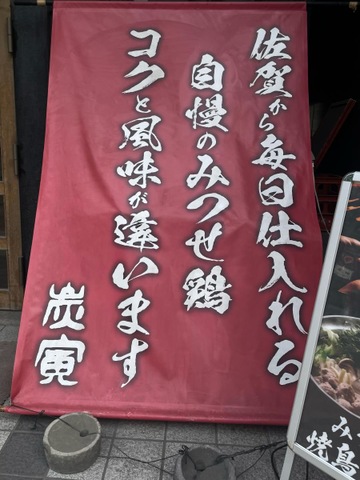 佐賀から毎日仕入れる
自慢のみつせ鶏
コクと風味が違います
炭寅
み
焼鳥